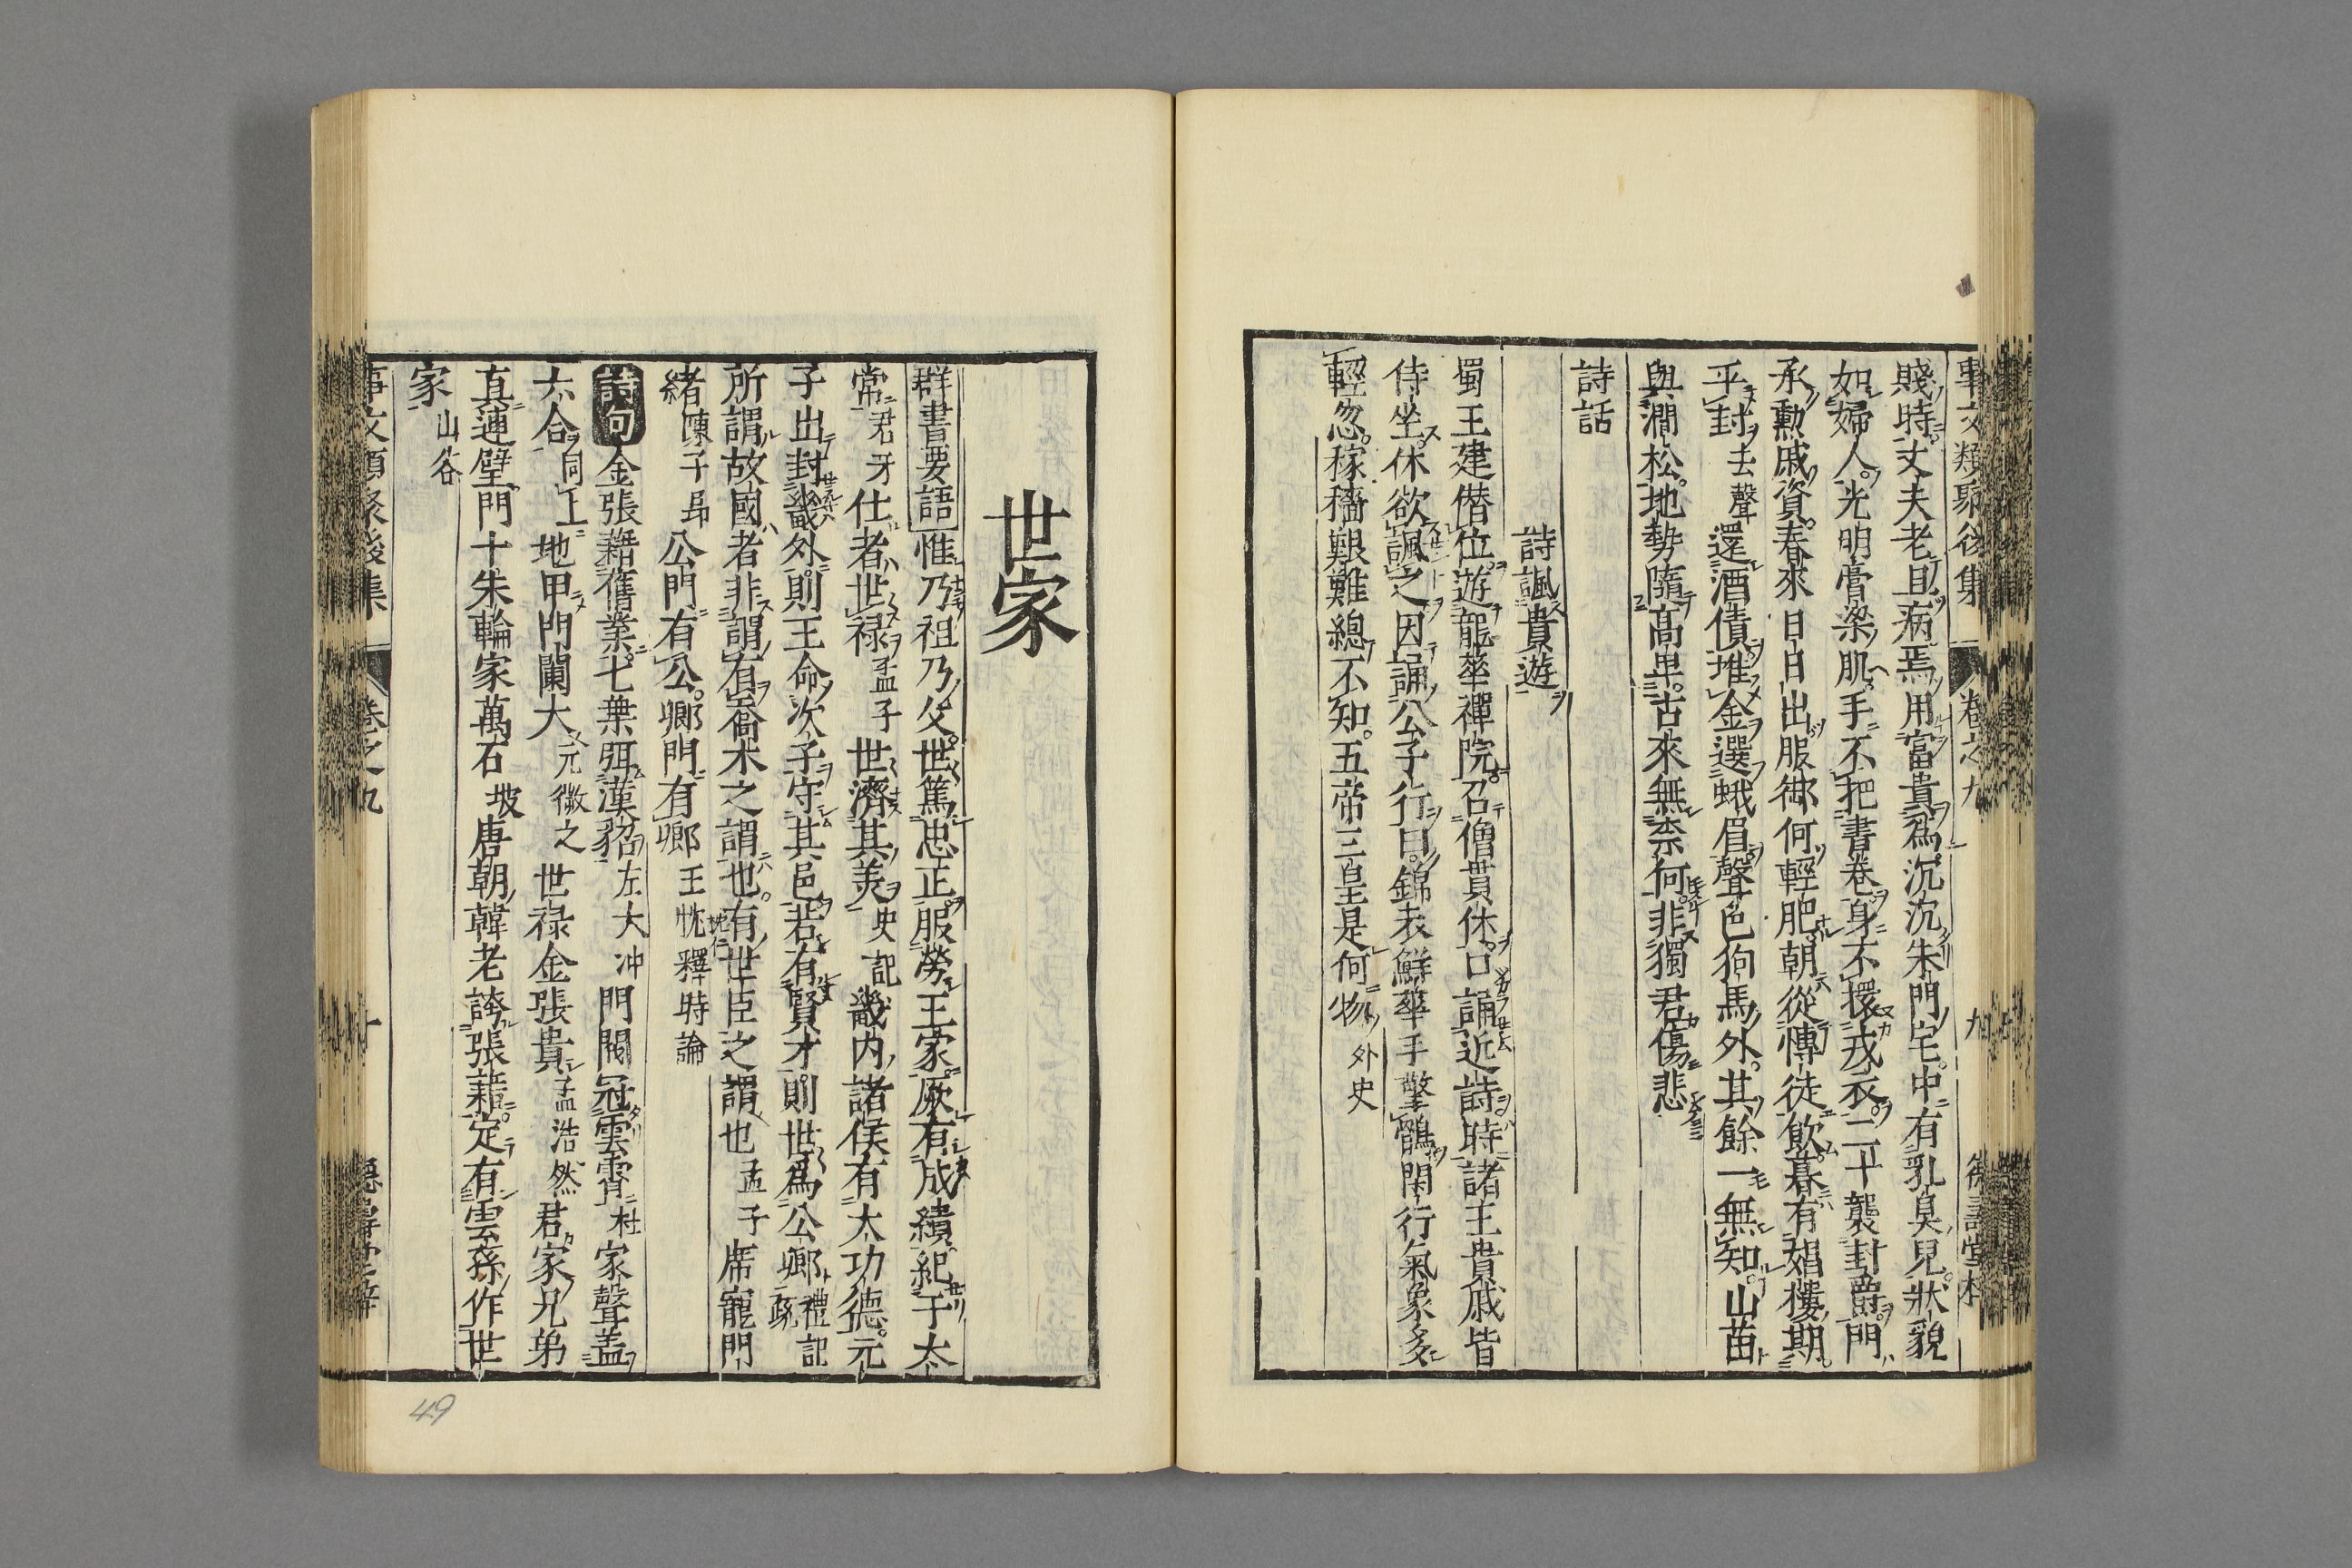 事文類聚後集 卷之九 九
賤時丈夫老且病焉用富貴爲沉沉朱門宅中有乳臭兒狀貌
如婦人光明膏粱肌手不把書卷身不擐戎衣二十襲封爵門
承勲戚資春來日日出服御何輕肥朝從慱徒飲暮有娼樓期
平封去聲還酒債堆金選蛾眉聲色狗馬外其餘一無知山苗
與澗松地勢隨高卑古來無柰何非獨君傷悲
詩話
詩諷貴遊
蜀王建僣位遊龍華禪院召僧貫休口誦近詩時諸王貴戚皆
侍坐休欲諷之因誦公子行曰錦衣鮮華手擎鶻閑行氣象多
輕忽稼穡艱難總不知五帝三皇是何物外史
世家
群書要語惟乃祖乃父世篤忠正服勞王家厥有成績紀于太
常君牙仕者世禄孟子世濟其美史記畿内諸侯有大功德元
子出封畿外則王命次子守其邑若有賢才則世爲公卿禮記疏
所謂故國者非謂有喬木之謂也有世臣之謂也孟子席寵門
緒陳子昻公門有公卿門有卿王忱釋時論
詩句金張藉舊業七葉珥漢貂左大冲門閥冠雲霄杜家聲盖
六合同上地甲門闌大元微之世禄金張貴孟浩然君家兄弟
真連璧門十朱輪家萬石坡唐朝韓老誇張籍定有雲孫作世
家山谷
事文類聚後集 卷之九 十
49